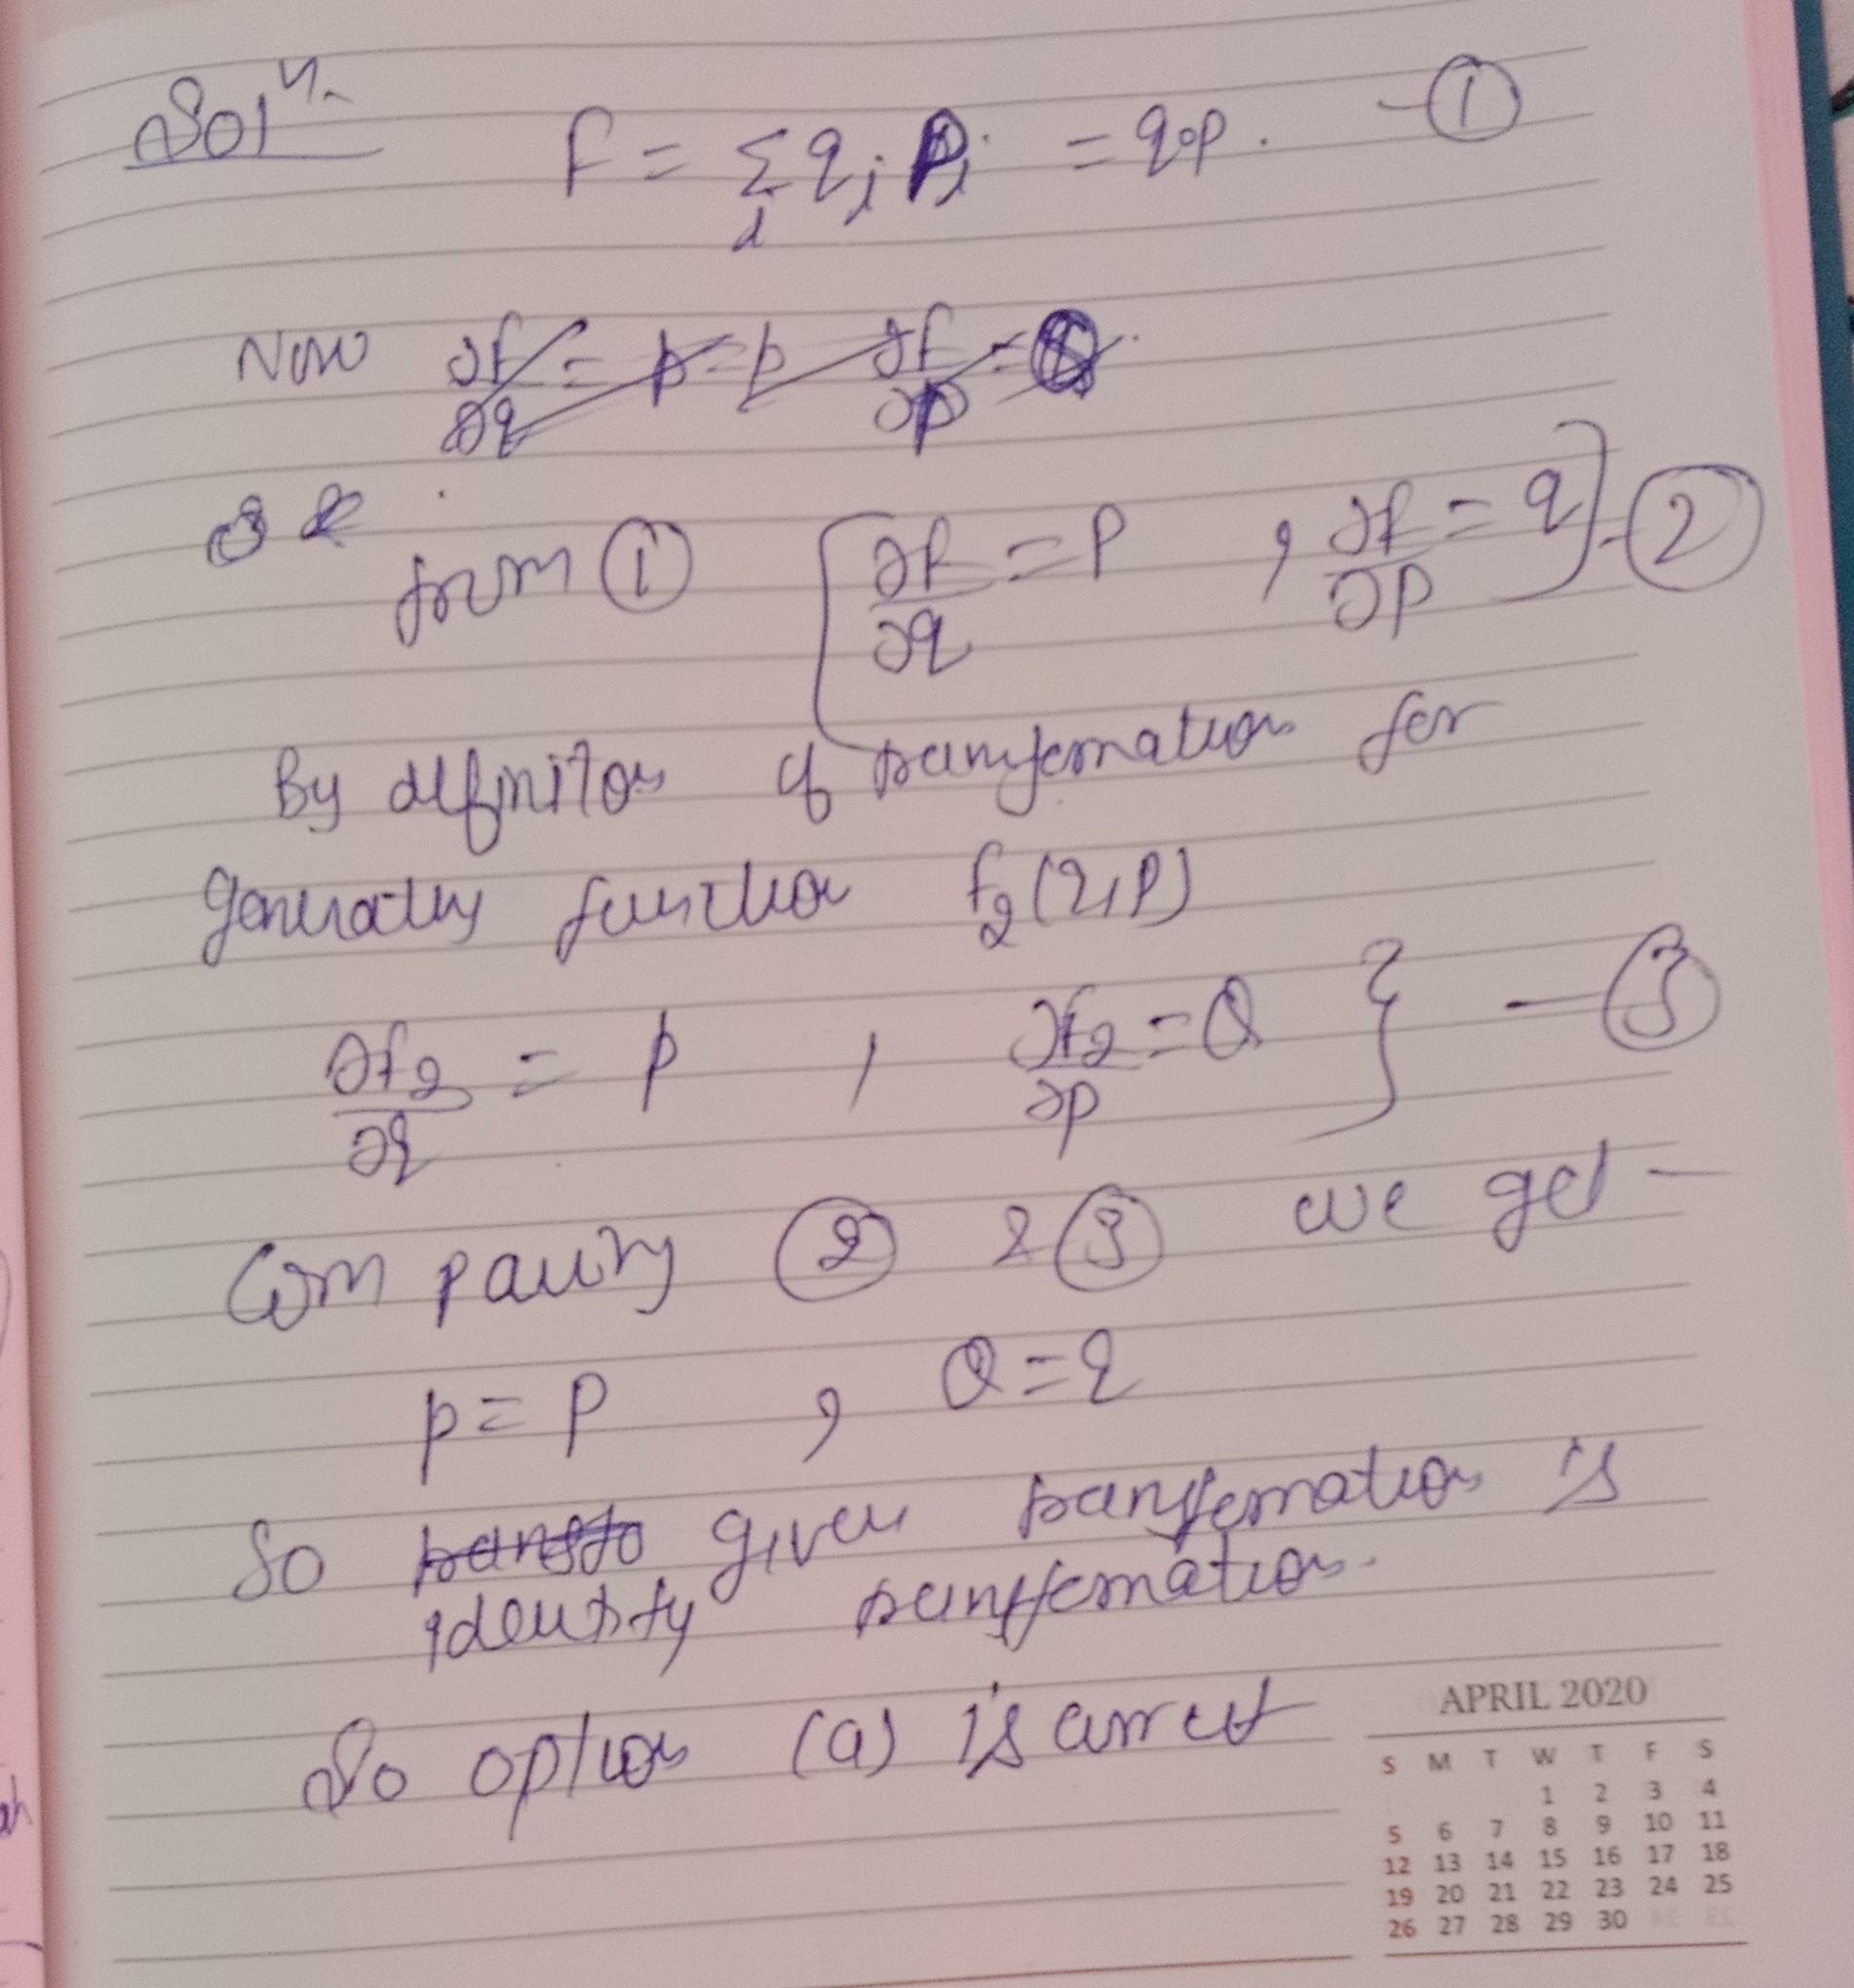 Solⁿ.
F = Σ qᵢ Pᵢ = q.p. - ①
i
Now ∂F/∂q = p = p ∂F/∂p =
from ① [∂F/∂q = P , ∂F/∂P = q] - ②
By definiton of transformation for
generating function F₂(q,P)
∂F₂/∂q = p , ∂F₂/∂P = Q } - ③
Comparing ② & ③ we get -
p = P , Q = q
So transfo given transformation is
identity transformation.
So option (a) is correct
APRIL 2020
S M T W T F S
1 2 3 4
5 6 7 8 9 10 11
12 13 14 15 16 17 18
19 20 21 22 23 24 25
26 27 28 29 30